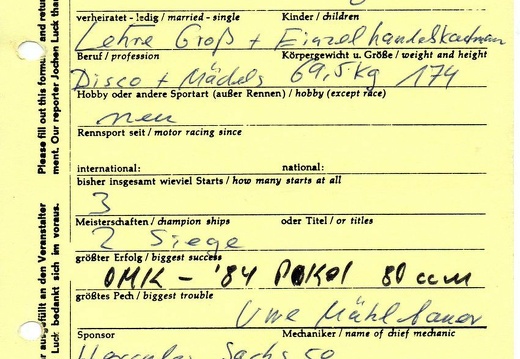 verheiratet - ledig / married - single Kinder / children
Lehre Groß + Einzelhandelskaufmann
Beruf / profession Körpergewicht u. Größe / weight and height
Disco + Mädels 69,5 kg 174
Hobby oder andere Sportart (außer Rennen) / hobby (except race)
neu
Rennsport seit / motor racing since
international: national:
bisher insgesamt wieviel Starts / how many starts at all
3
Meisterschaften / champion ships oder Titel / or titles
2 Siege
größter Erfolg / biggest success
OMK - '84 POKAL 80 ccm
größtes Pech / biggest trouble
Uwe Mühlbauer
Sponsor Mechaniker / name of chief mechanic
Sachs
Please fill out this formu and return
ment. Our reporter Jochen Luck than
ausgefüllt an den Veranstalter
Luck bedankt sich im voraus.